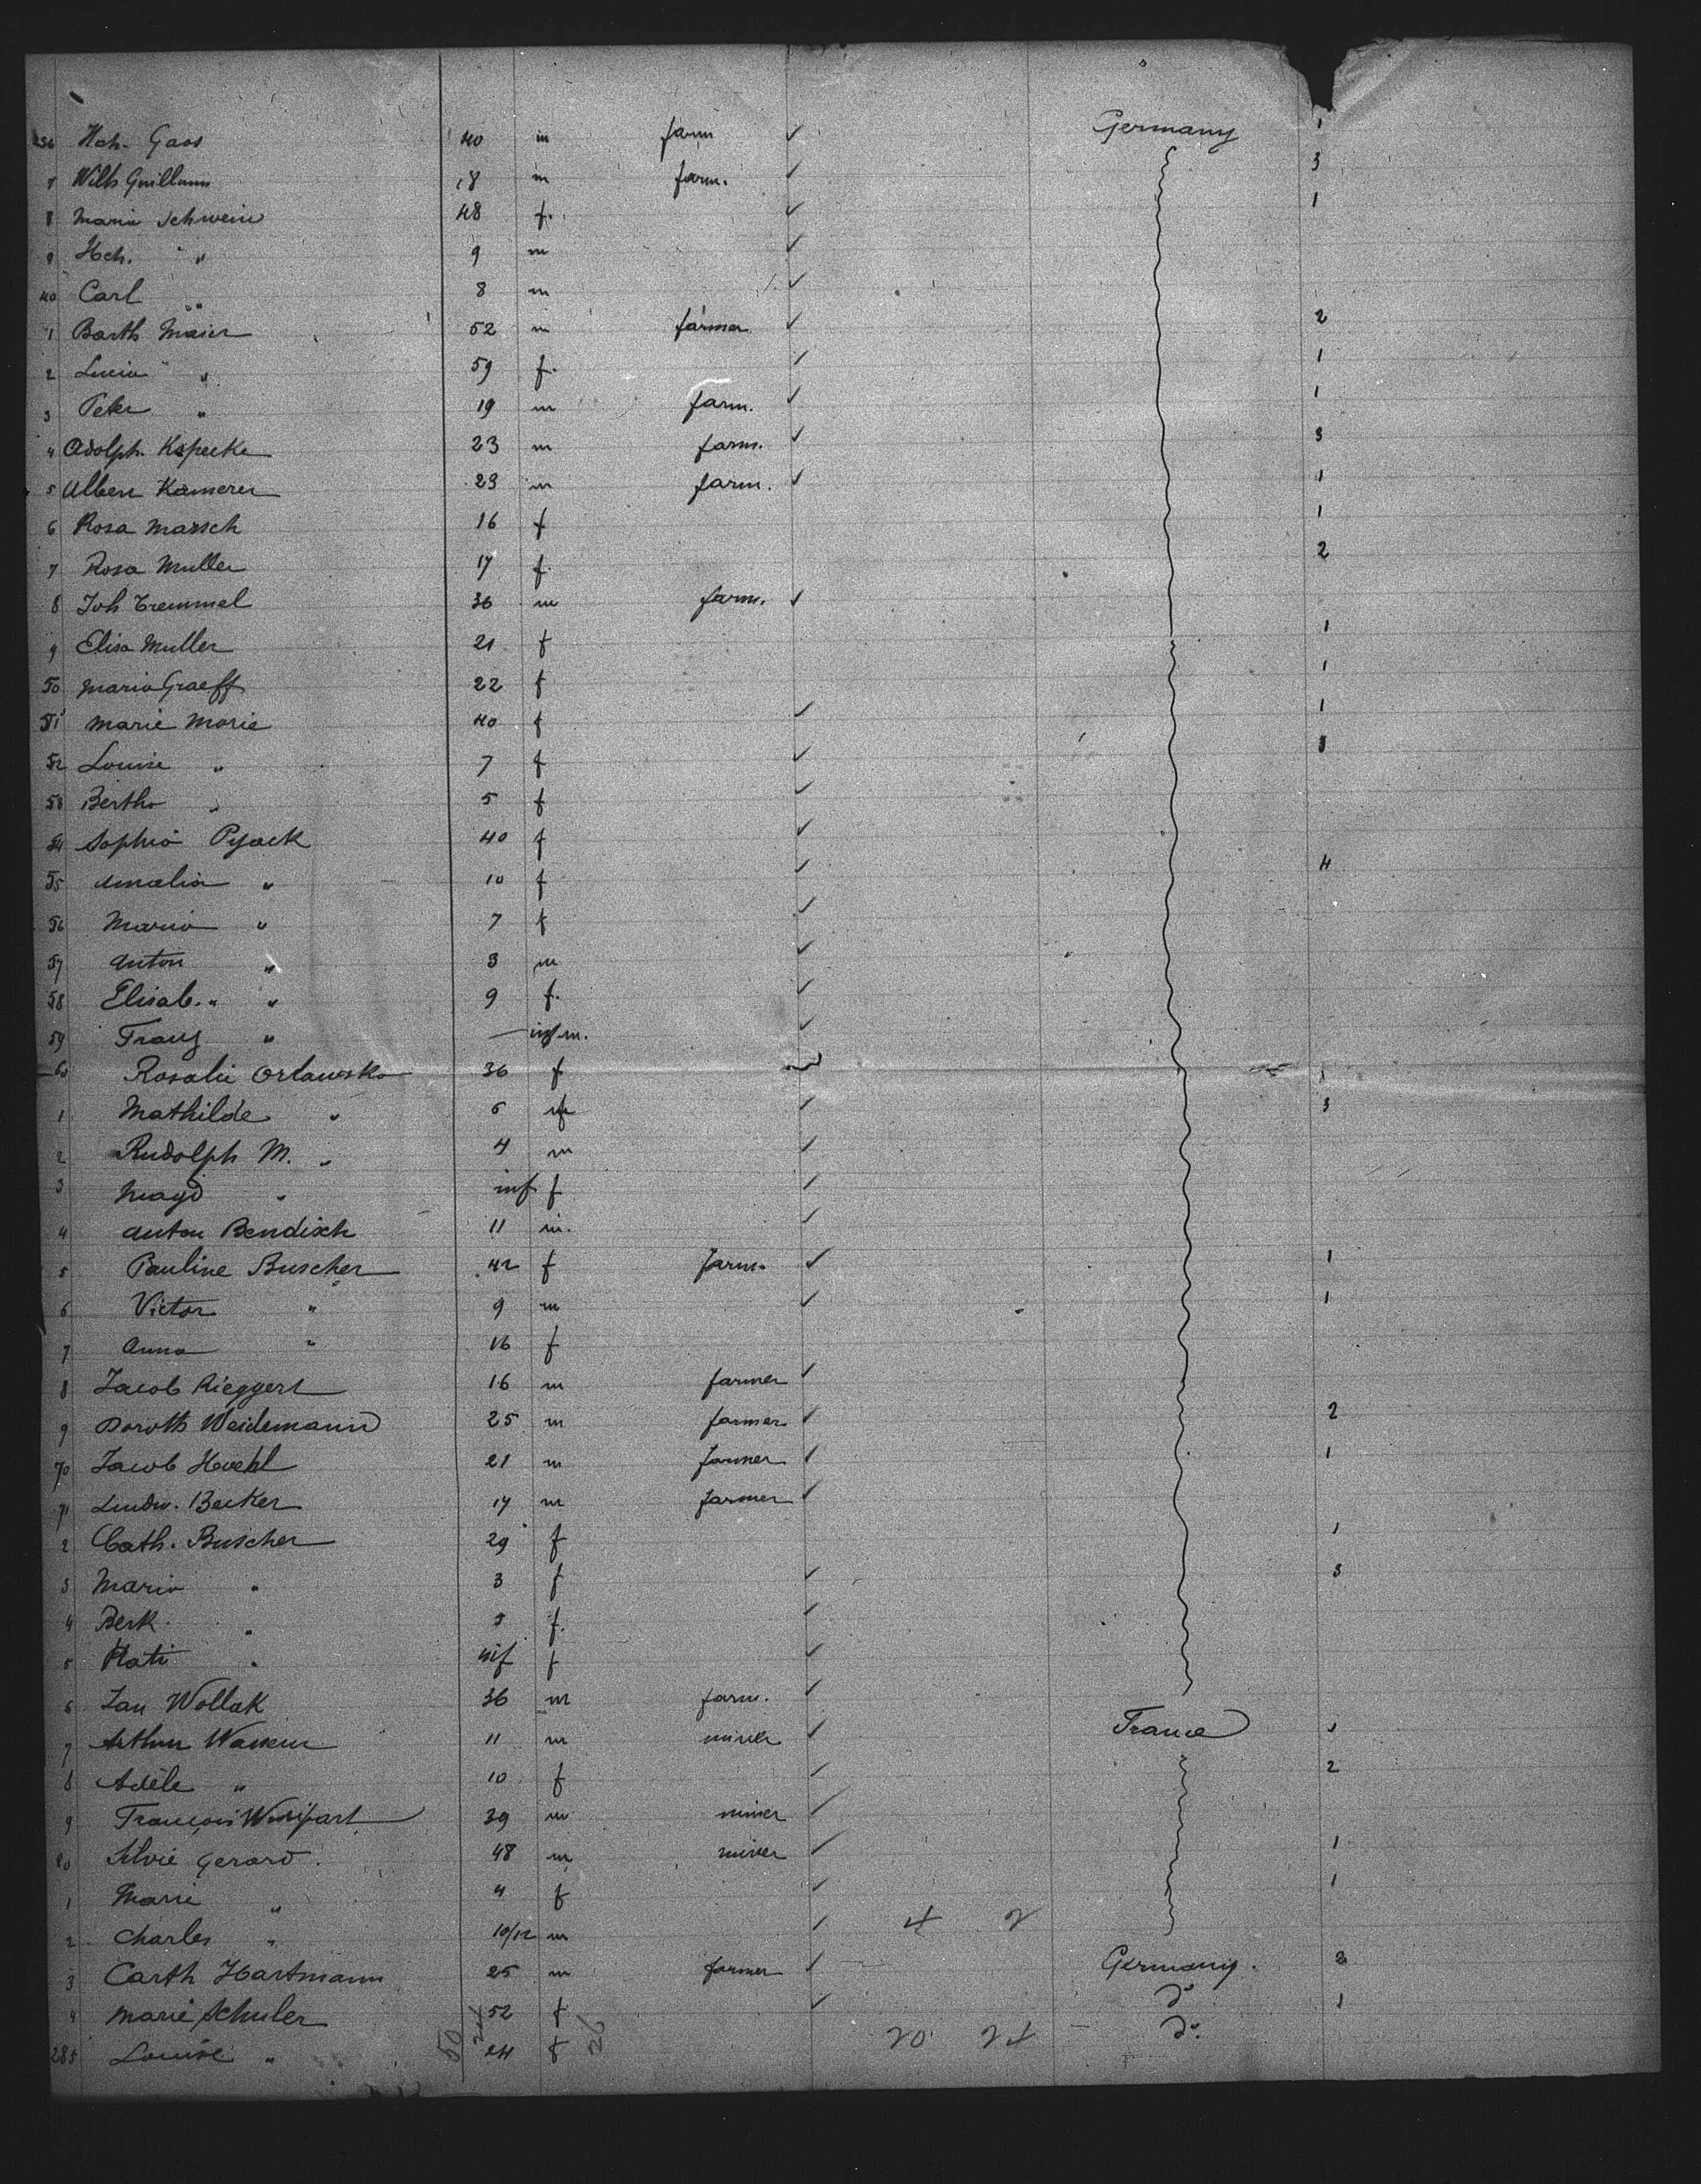 236 Hch. Gaos 40 m farm ✓ Germany 1
7 Wilh Guillaum 18 m farm. ✓ 3
8 Maria Schwein 48 f. ✓ 1
9 Hch. " 9 m ✓
40 Carl " 8 m ✓
1 Barth Maier 52 m farmer ✓ 2
2 Lucia " 59 f. ✓ 1
3 Peter " 19 m farm. ✓ 1
4 Adolph. Kopecke 23 m farm. ✓ 3
5 Alben Kamerer 23 m farm. ✓ 1
6 Rosa Marsch 16 f 1
7 Rosa Muller 17 f. 2
8 Joh Tremmel 36 m farm. ✓
9 Elisa Muller 21 f 1
50 Maria Graeff 22 f 1
51 Marie Marie 40 f ✓ 1
52 Louise " 7 f ✓
53 Bertha " 5 f ✓
54 Sophia Pyack 40 f ✓
55 Amalia " 10 f ✓ 4
56 Maria " 7 f ✓
57 Anton " 3 m ✓
58 Elisab. " " 9 f. ✓
59 Franz " — inf m. ✓
60 Rosalie Orlawska 36 f ✓ 1
1 Mathilde " 6 f ✓ 3
2 Rudolph M. " 4 m ✓
3 Magd " inf f ✓
4 Anton Bendixh 11 m. ✓
5 Pauline Buscher 42 f farm. ✓ 1
6 Victor " 9 m ✓ 1
7 Anna " 16 f
8 Jacob Rieggert 16 m farmer ✓
9 Doroth Weidemann 25 m farmer ✓ 2
70 Jacob Hoehl 21 m farmer ✓ 1
71 Ludw. Becker 17 m farmer ✓
2 Cath. Buscher 29 f 1
3 Maria " 3 f ✓ 3
4 Berk " 5 f. ✓
5 Kati " inf f ✓
6 Jan Wollak 36 m farm. ✓
7 Arthur Wassem 11 m miner ✓ France 1
8 Adèle " 10 f ✓ 2
9 François 39 m miner ✓
80 Silvie Gerard. 48 m miner ✓ 1
1 Marie " 4 f ✓ 1
2 Charles " 10/12 m ✓ 4 2
3 Carth Hartmann 25 m farmer ✓ Germany. 2
4 Marie Schuler 52 f ✓ do 1
285 Louise " 24 f do.
50 24 26 20 24